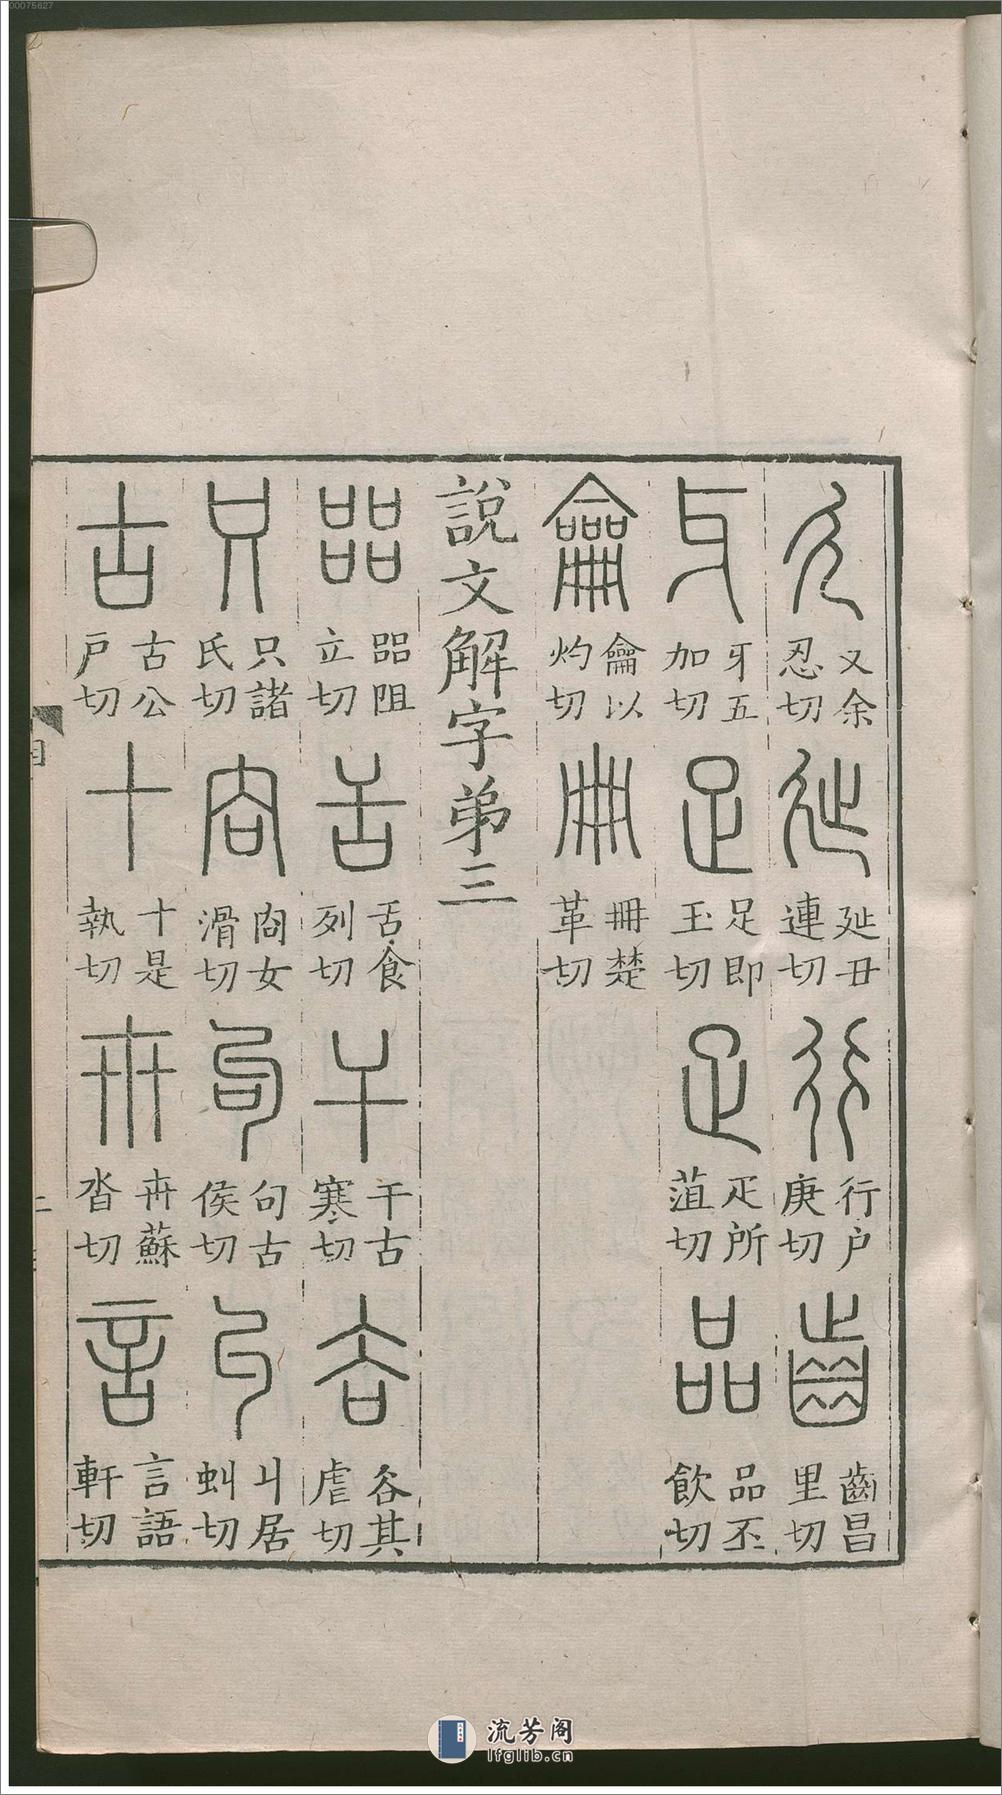 00075627
廴 廴余忍切 㢟 㢟丑連切 行 行户庚切 齒 齒昌里切
牙 牙五加切 足 足即玉切 疋 疋所菹切 品 品丕飲切
龠 龠以灼切 冊 冊楚革切
說文解字弟三
㗊 㗊阻立切 舌 舌食列切 干 干古寒切 𧮫 𧮫其虐切
只 只諸氏切 㕯 㕯女滑切 句 句古侯切 丩 丩居虯切
古 古公戶切 十 十是執切 卅 卅蘇沓切 言 言語軒切
目
流芳阁
lfglib.cn